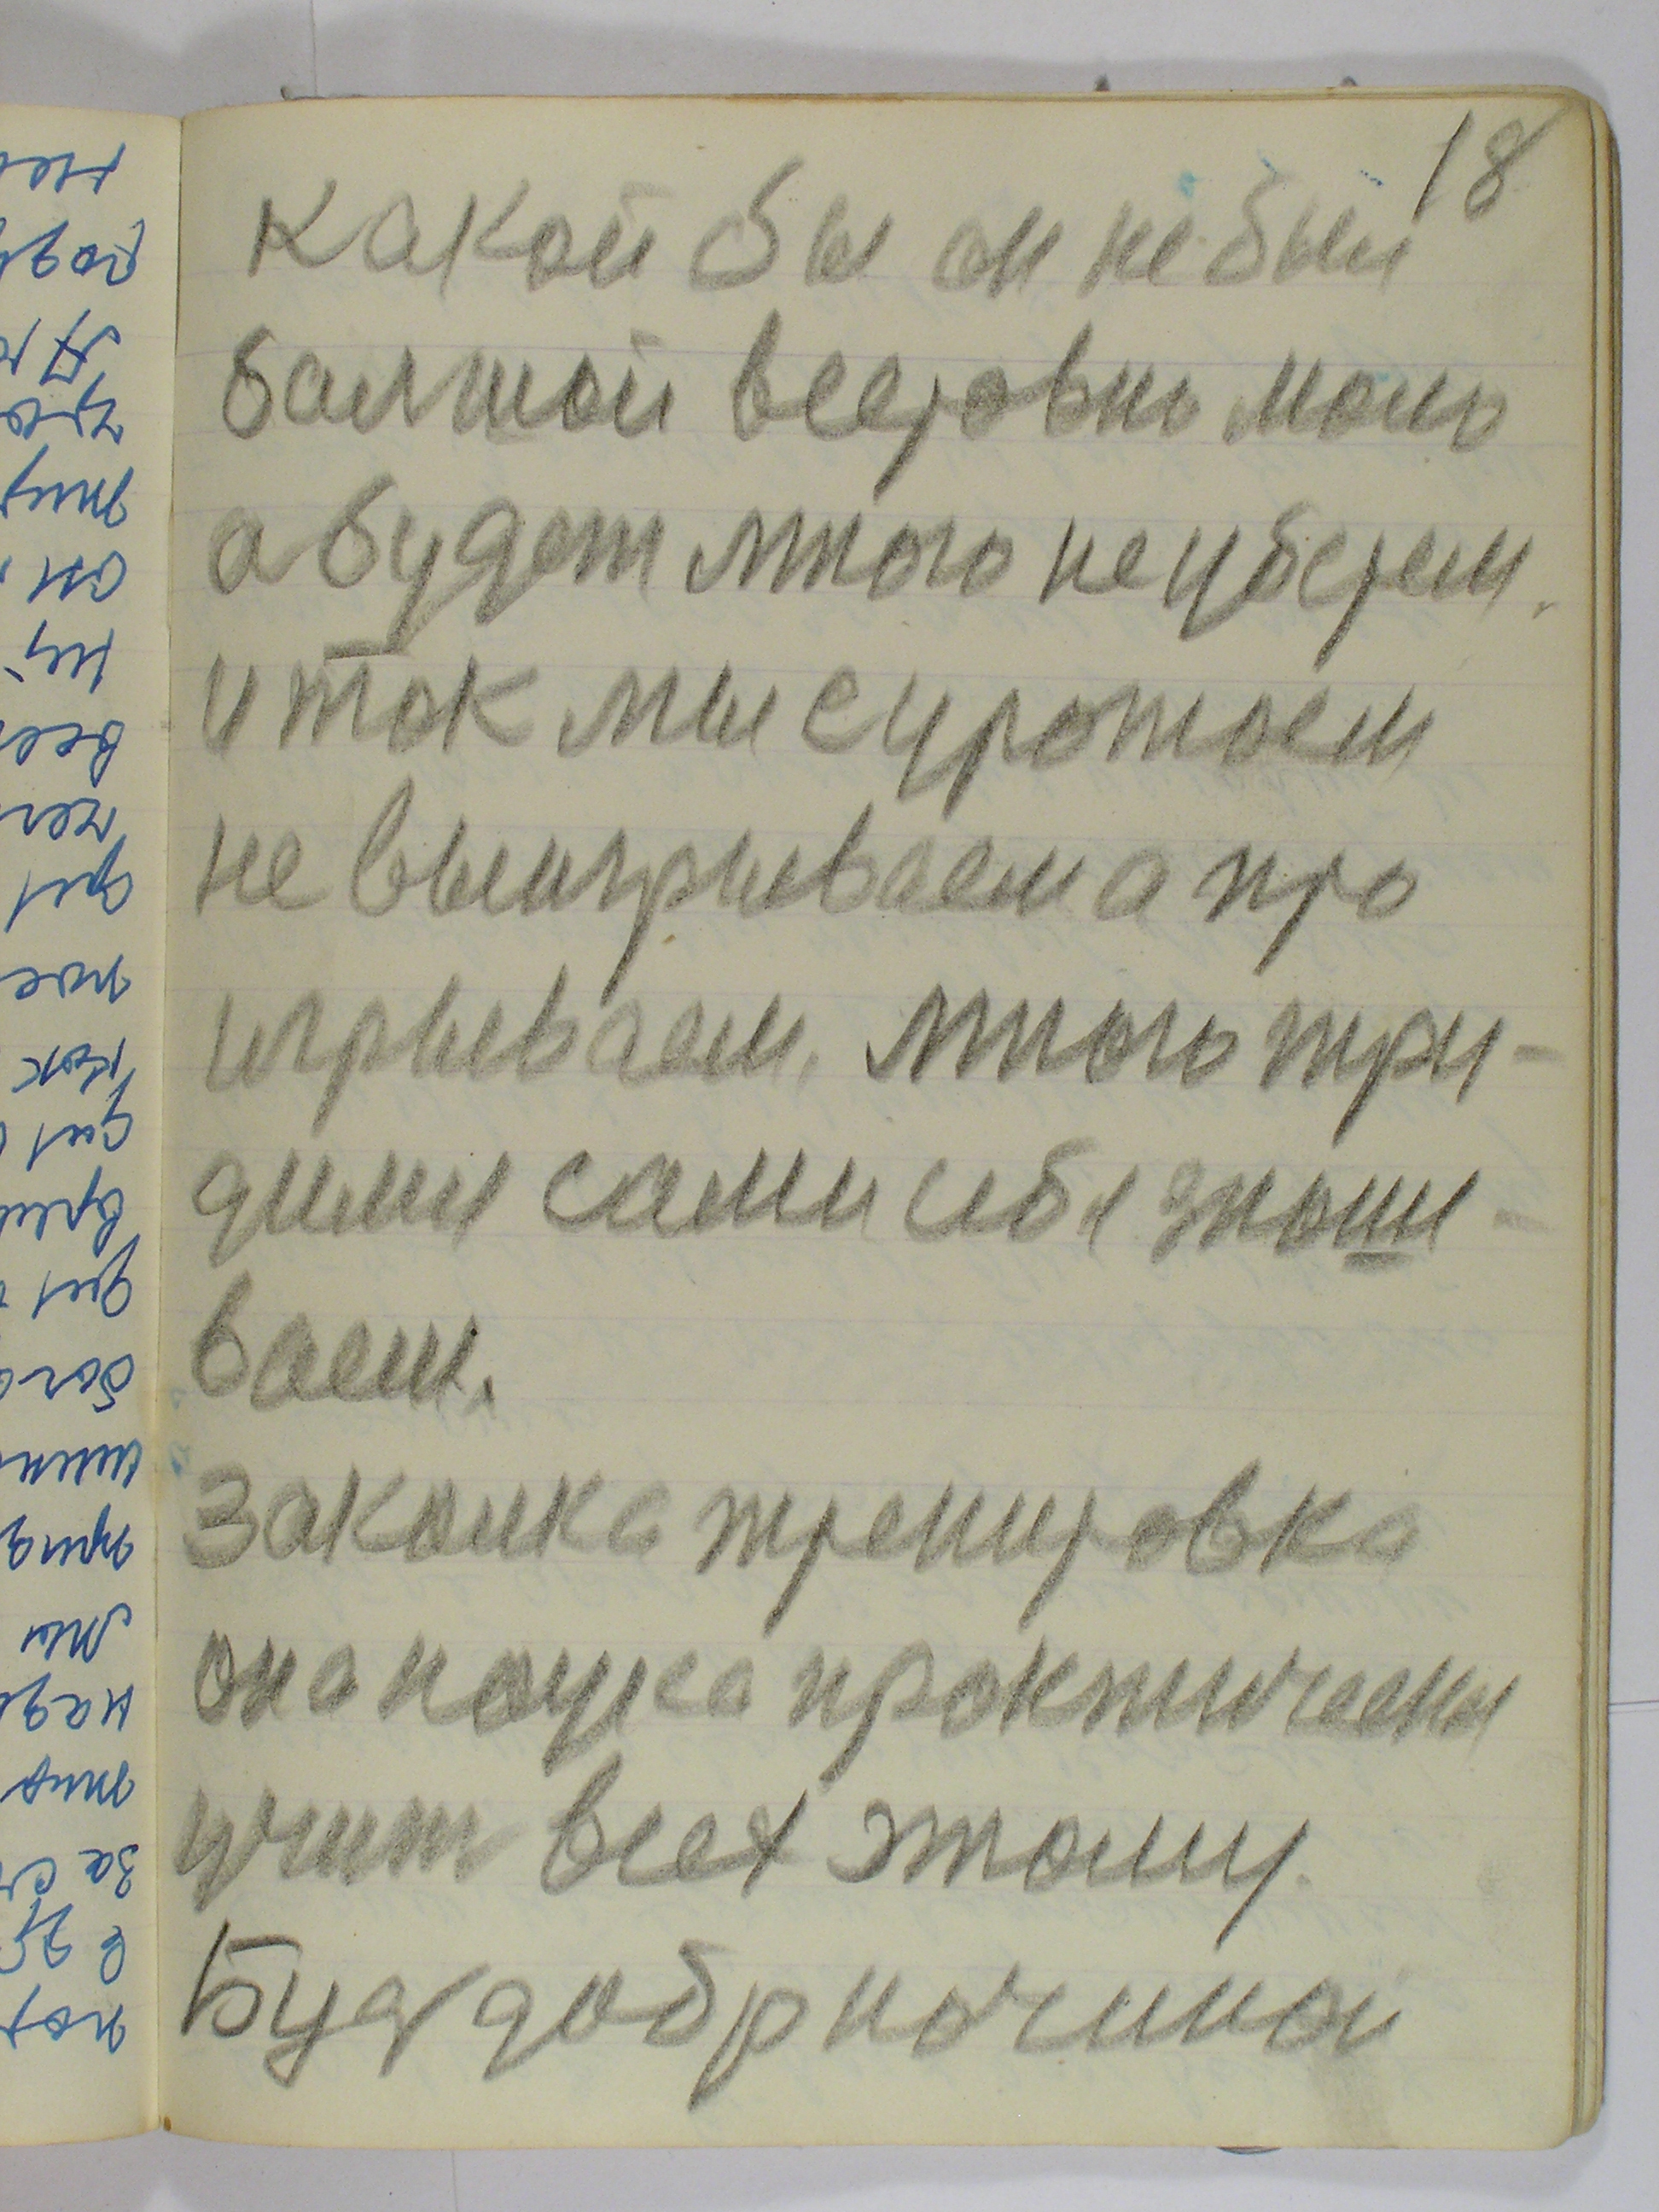 18
какой бы он не был
балшой всеровно мало
а будет много не уберем.
и так мы с уражаем
не выигрываем а про
игрываем. много тру-
димы сами себя знаши-
ваем.
Закалка тренировка
она наука практически
учит всех этому.
Будь добр начинай